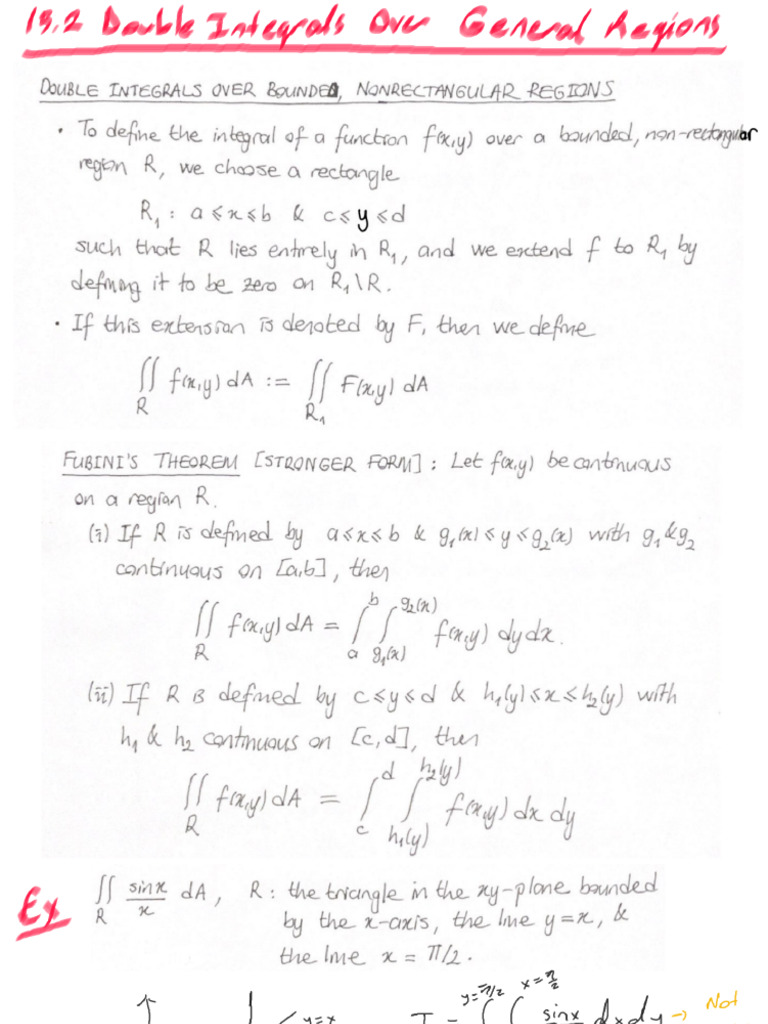 15.2 Double Integrals Over General Regions
DOUBLE INTEGRALS OVER BOUNDED, NONRECTANGULAR REGIONS
• To define the integral of a function f(x,y) over a bounded, non-rectangular
region R, we choose a rectangle
R₁ : a ⩽ x ⩽ b & c ⩽ y ⩽ d
such that R lies entirely in R₁, and we extend f to R₁ by
defining it to be zero on R₁\R.
• If this extension is denoted by F, then we define
∬_R f(x,y) dA := ∬_R₁ F(x,y) dA
FUBINI'S THEOREM [STRONGER FORM] : Let f(x,y) be continuous
on a region R.
(i) If R is defined by a ⩽ x ⩽ b & g₁(x) ⩽ y ⩽ g₂(x) with g₁ & g₂
continuous on [a,b], then
∬_R f(x,y) dA = ∫_a^b ∫_g₁(x)^g₂(x) f(x,y) dy dx.
(ii) If R is defined by c ⩽ y ⩽ d & h₁(y) ⩽ x ⩽ h₂(y) with
h₁ & h₂ continuous on [c,d], then
∬_R f(x,y) dA = ∫_c^d ∫_h₁(y)^h₂(y) f(x,y) dx dy
Ex ∬_R sinx/x dA, R : the triangle in the xy-plane bounded
by the x-axis, the line y = x, &
the line x = π/2.
y=x I = ∫^y=π/2 ∫^x=π/2 sinx dx dy → Not